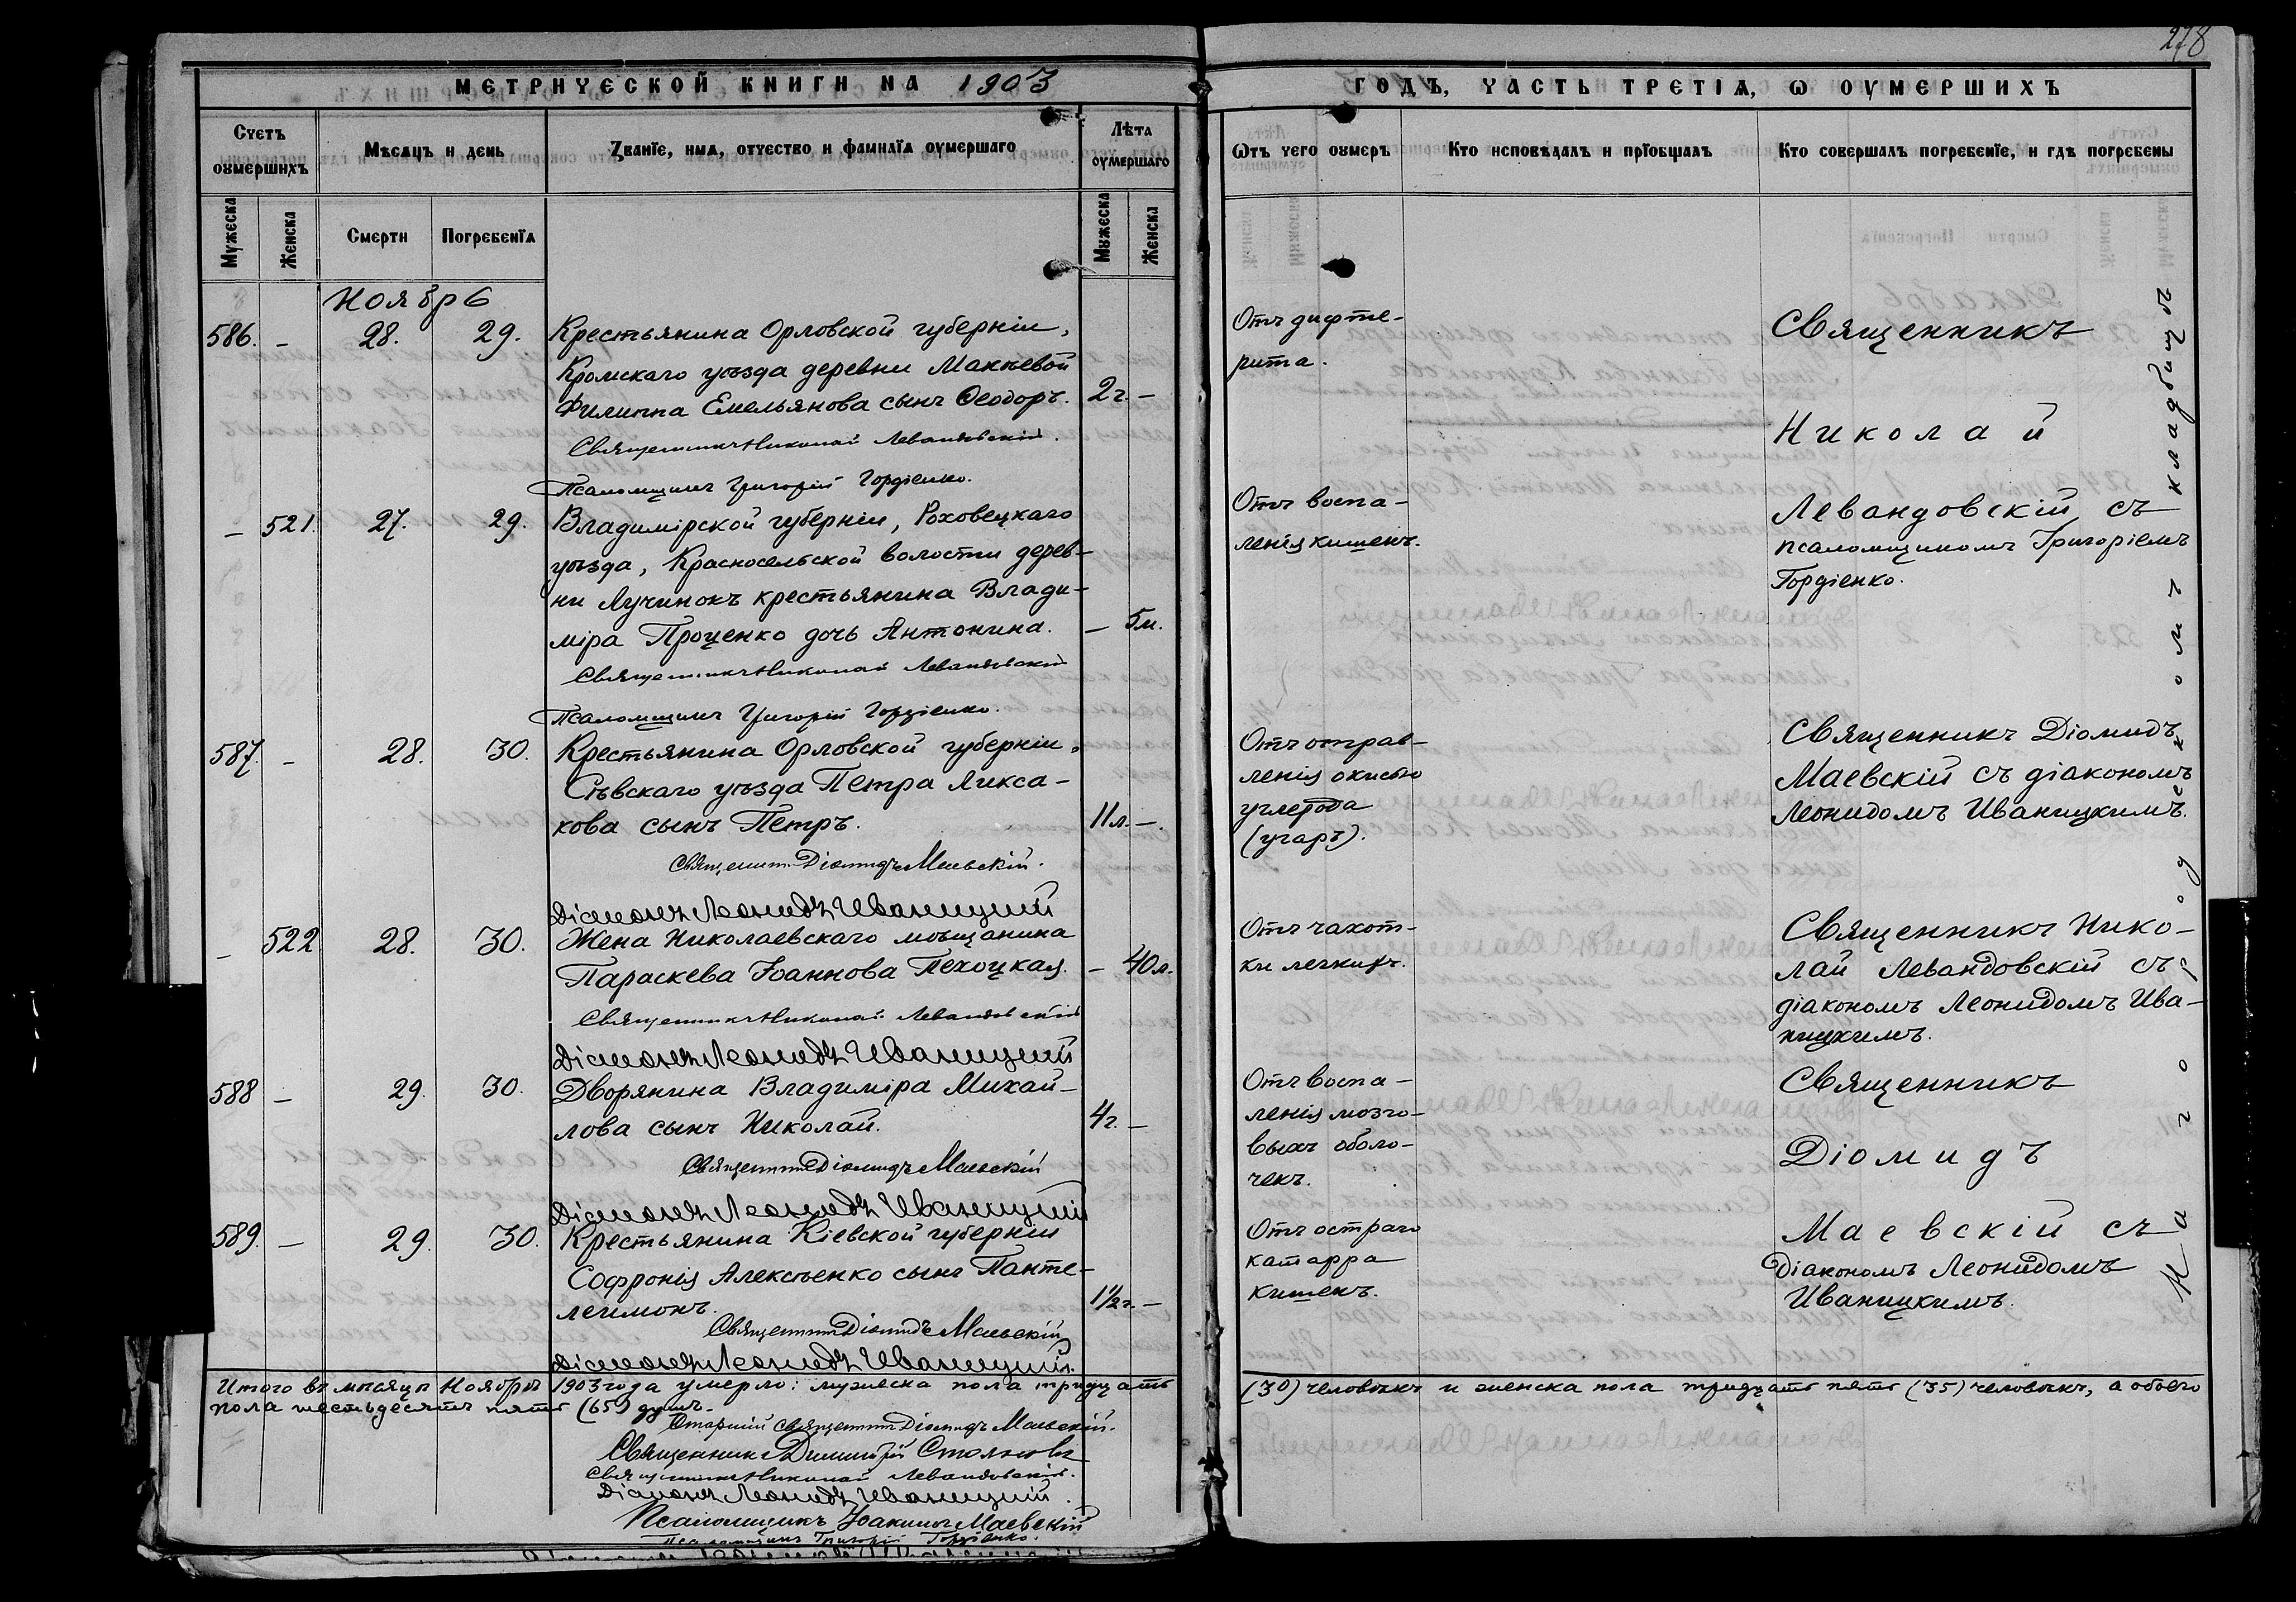 278
МЕТРИЧЕСКОЙ КНИГИ НА 1903
ГОДЪ, ЧАСТЬ ТРЕТІѦ, Ѡ ОУМЕРШИХЪ
Счетъ оумершихъ
Мѣсѧцъ и день
Званіе, имѧ, отчество и фамиліѧ оумершаго
Лѣта оумершаго
Ѿтъ чего оумеръ
Кто исповѣдалъ и пріобщалъ
Кто совершалъ погребеніе, и гдѣ погребены
Мужеска
Женска
Смерти
Погребеніѧ
Мужеска
Женска
Ноябрь
586. - 28. 29. Крестьянина Орловской губерніи,
Кромскаго уѣзда деревни Макѣевой
Филиппа Емельянова сынъ Ѳеодоръ. 2г. -
Священникъ Николай Левандовскій.
Псаломщикъ Григорій Гордіенко.
Отъ дифте-
рита.
Священникъ
Николай
Левандовскій съ
псаломщикомъ Григоріемъ
Гордіенко.
- 521. 27. 29. Владимірской губерніи, Роховецкаго
уѣзда, Красносельской волости дерев-
ни Лучинокъ крестьянина Влади-
міра Проценко дочь Антонина. - 5м.
Священникъ Николай Левандовскій
Псаломщикъ Григорій Гордіенко.
Отъ воспа-
ленія кишекъ.
587. - 28. 30. Крестьянина Орловской губерніи,
Сѣвскаго уѣзда Петра Алекса-
кова сынъ Петръ. 11л. -.
Священникъ Діомидъ Маевскій.
Діаконъ Леонидъ Иваницкій
Отъ отрав-
ленія окисью
углерода
(угаръ).
Священникъ Діомидъ
Маевскій съ діакономъ
Леонидомъ Иваницкимъ.
- 522 28. 30. Жена Николаевскаго мѣщанина
Параскева Іоаннова Пехоцкая. - 40л.
Священникъ Николай Левандовскій
Діаконъ Леонидъ Иваницкій
Отъ чахот-
ки легкихъ.
Священникъ Нико-
лай Левандовскій съ
діакономъ Леонидомъ Ива-
ницкимъ.
588 - 29. 30. Дворянина Владиміра Михай-
лова сынъ Николай. 4г. -
Священникъ Діомидъ Маевскій
Діаконъ Леонидъ Иваницкій
Отъ воспа-
ленія мозго-
выхъ оболо-
чекъ.
Священникъ
Діомидъ
Маевскій съ
діакономъ Леонидомъ
Иваницкимъ.
589. - 29. 30. Крестьянина Кіевской губерніи
Софронія Алексѣенко сынъ Панте-
леимонъ. 1½г. -
Священникъ Діомидъ Маевскій
Діаконъ Леонидъ Иваницкій.
Отъ остраго
катарра
кишекъ.
На городскомъ кладбищѣ
Итого въ мѣсяцѣ Ноябрѣ 1903 года умерло: мужеска пола тридцать (30) человѣкъ и женска пола тридцать пять (35) человѣкъ, а обоего
пола шестьдесятъ пять (65) душъ.
Старшій Священникъ Діомидъ Маевскій.
Священникъ Димитрій
Священникъ Николай Левандовскій.
Діаконъ Леонидъ Иваницкій.
Псаломщикъ Іоакимъ Маевскій
Псаломщикъ Григорій Гордіенко.